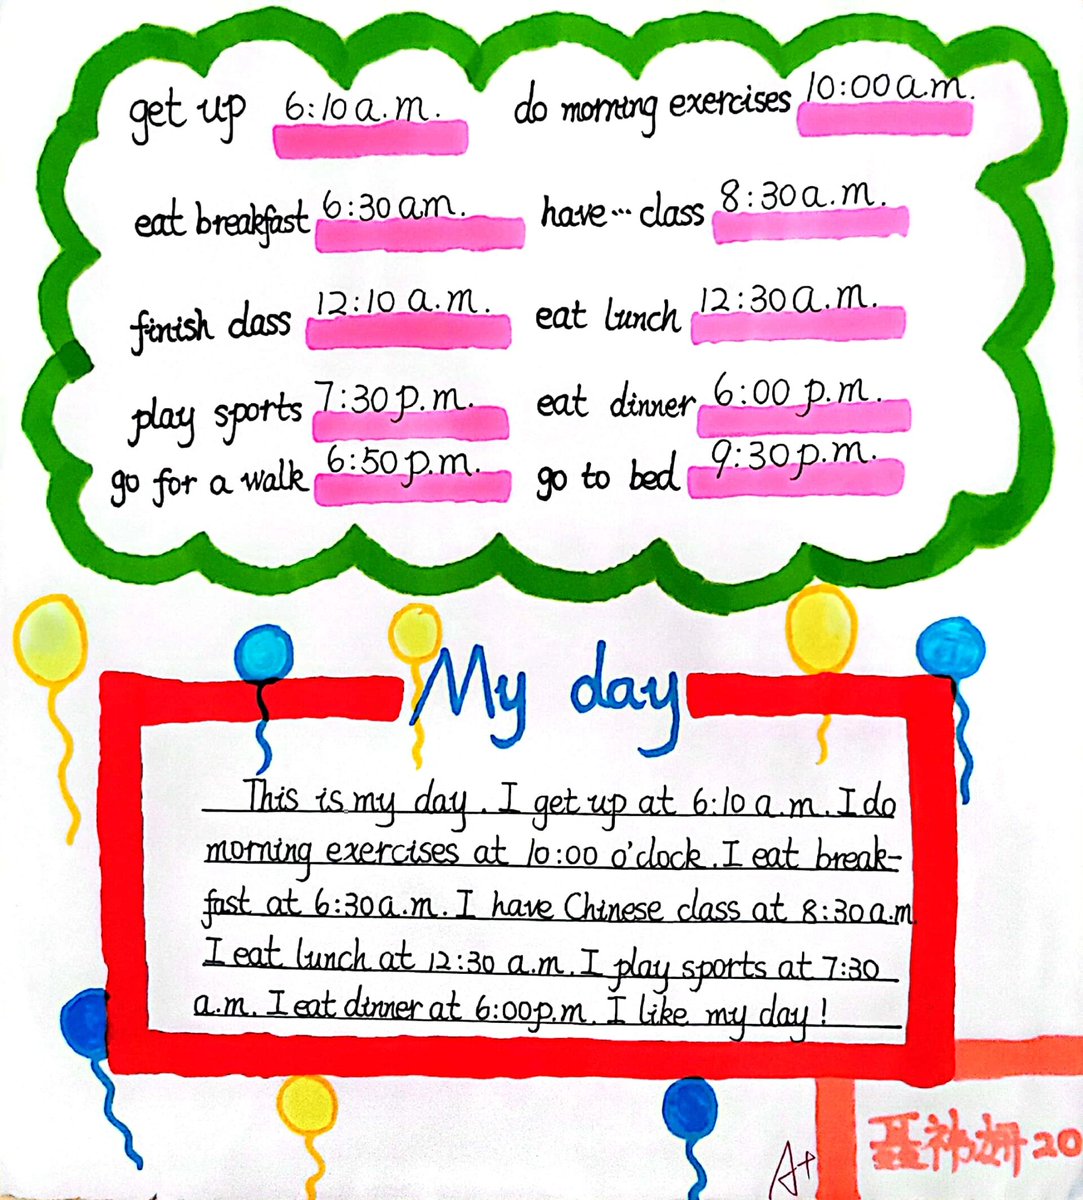 get up 6:10 a.m. do morning exercises 10:00 a.m.
eat breakfast 6:30 am. have... class 8:30 a.m.
finish class 12:10 a.m. eat lunch 12:30 a.m.
play sports 7:30 p.m. eat dinner 6:00 p.m.
go for a walk 6:50 p.m. go to bed 9:30 p.m.
My day
This is my day. I get up at 6:10 a.m. I do
morning exercises at 10:00 o'clock. I eat break-
fast at 6:30 a.m. I have Chinese class at 8:30 a.m.
I eat lunch at 12:30 a.m. I play sports at 7:30
a.m. I eat dinner at 6:00 p.m. I like my day!
A+
20